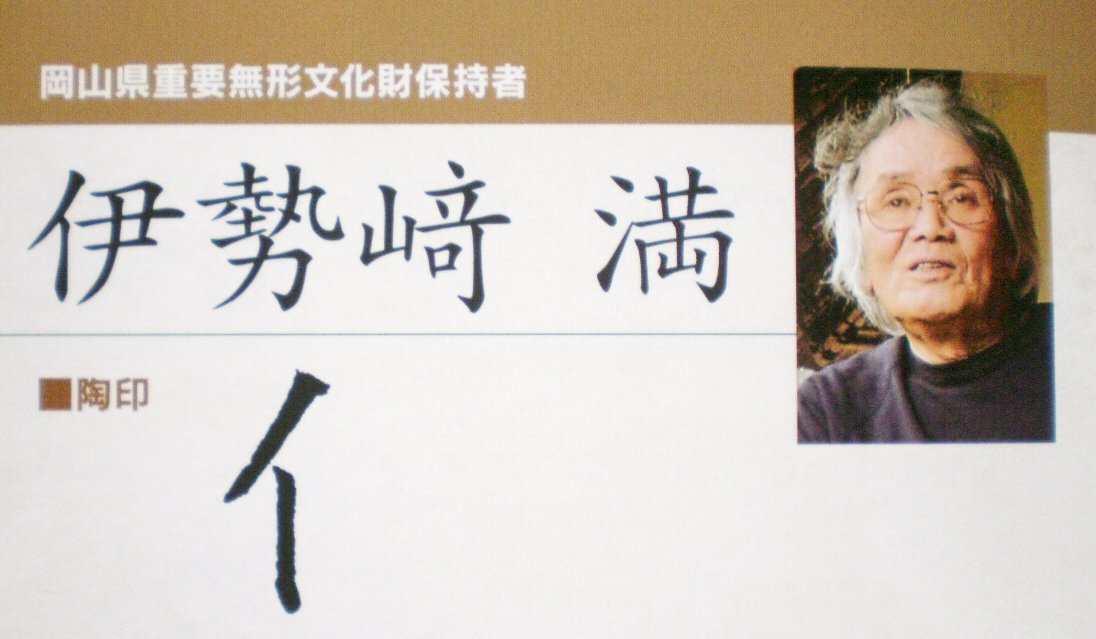 岡山県重要無形文化財保持者
伊勢﨑 満
■陶印
イ